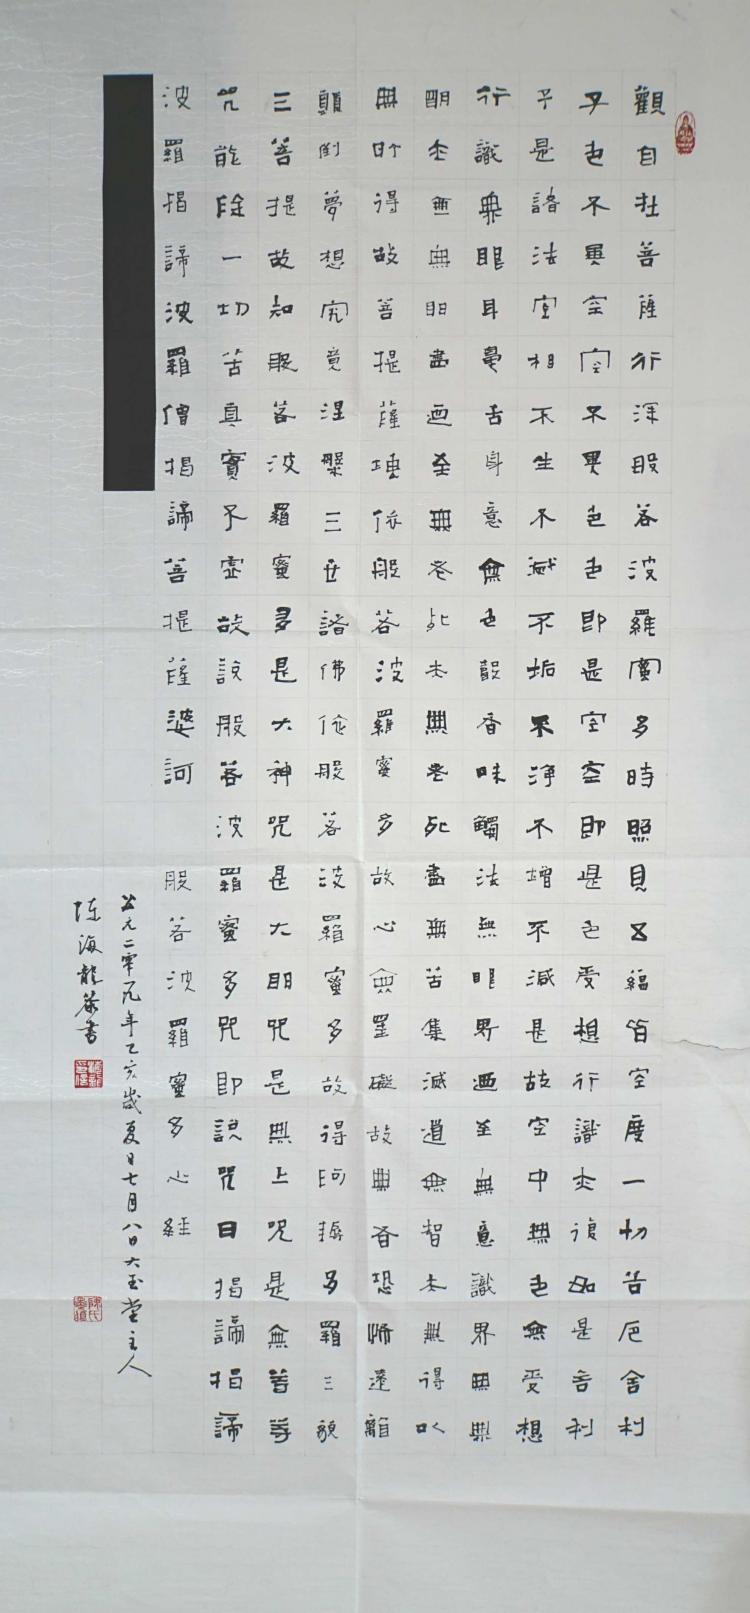 觀自在菩薩行深般若波羅蜜多時照見五蘊皆空度一切苦厄舍利
子色不異空空不異色色即是空空即是色受想行識亦復如是舍利
子是諸法空相不生不滅不垢不淨不增不減是故空中無色無受想
行識無眼耳鼻舌身意無色聲香味觸法無眼界迺至無意識界無無
明亦無無明盡迺至無老死亦無老死盡無苦集滅道無智亦無得以
無所得故菩提薩埵依般若波羅蜜多故心無罣礙故無有恐怖遠離
顛倒夢想究竟涅槃三世諸佛依般若波羅蜜多故得阿耨多羅三藐
三菩提故知般若波羅蜜多是大神咒是大明咒是無上咒是無等等
咒能除一切苦真實不虛故說般若波羅蜜多咒即說咒曰揭諦揭諦
波羅揭諦波羅僧揭諦菩提薩婆訶 般若波羅蜜多心經
公元二零一九年己亥歲夏日七月八日大玉堂主人
陈海龍恭書